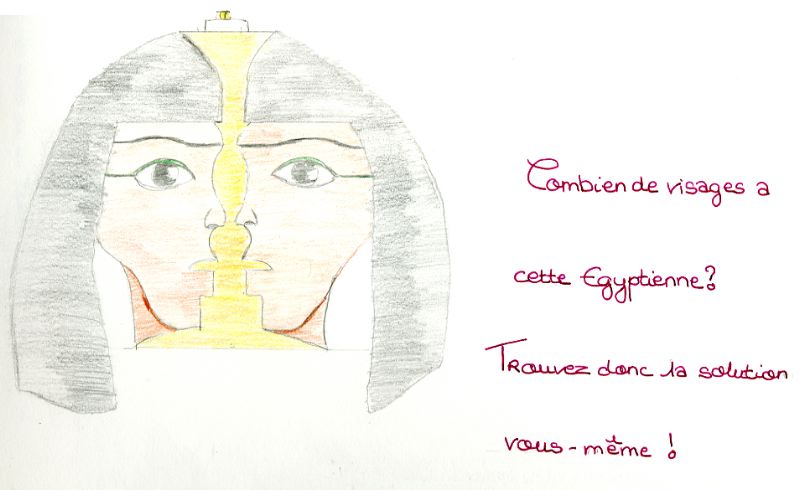 Combien de visages a
cette Egyptienne?
Trouvez donc la solution
vous-même !